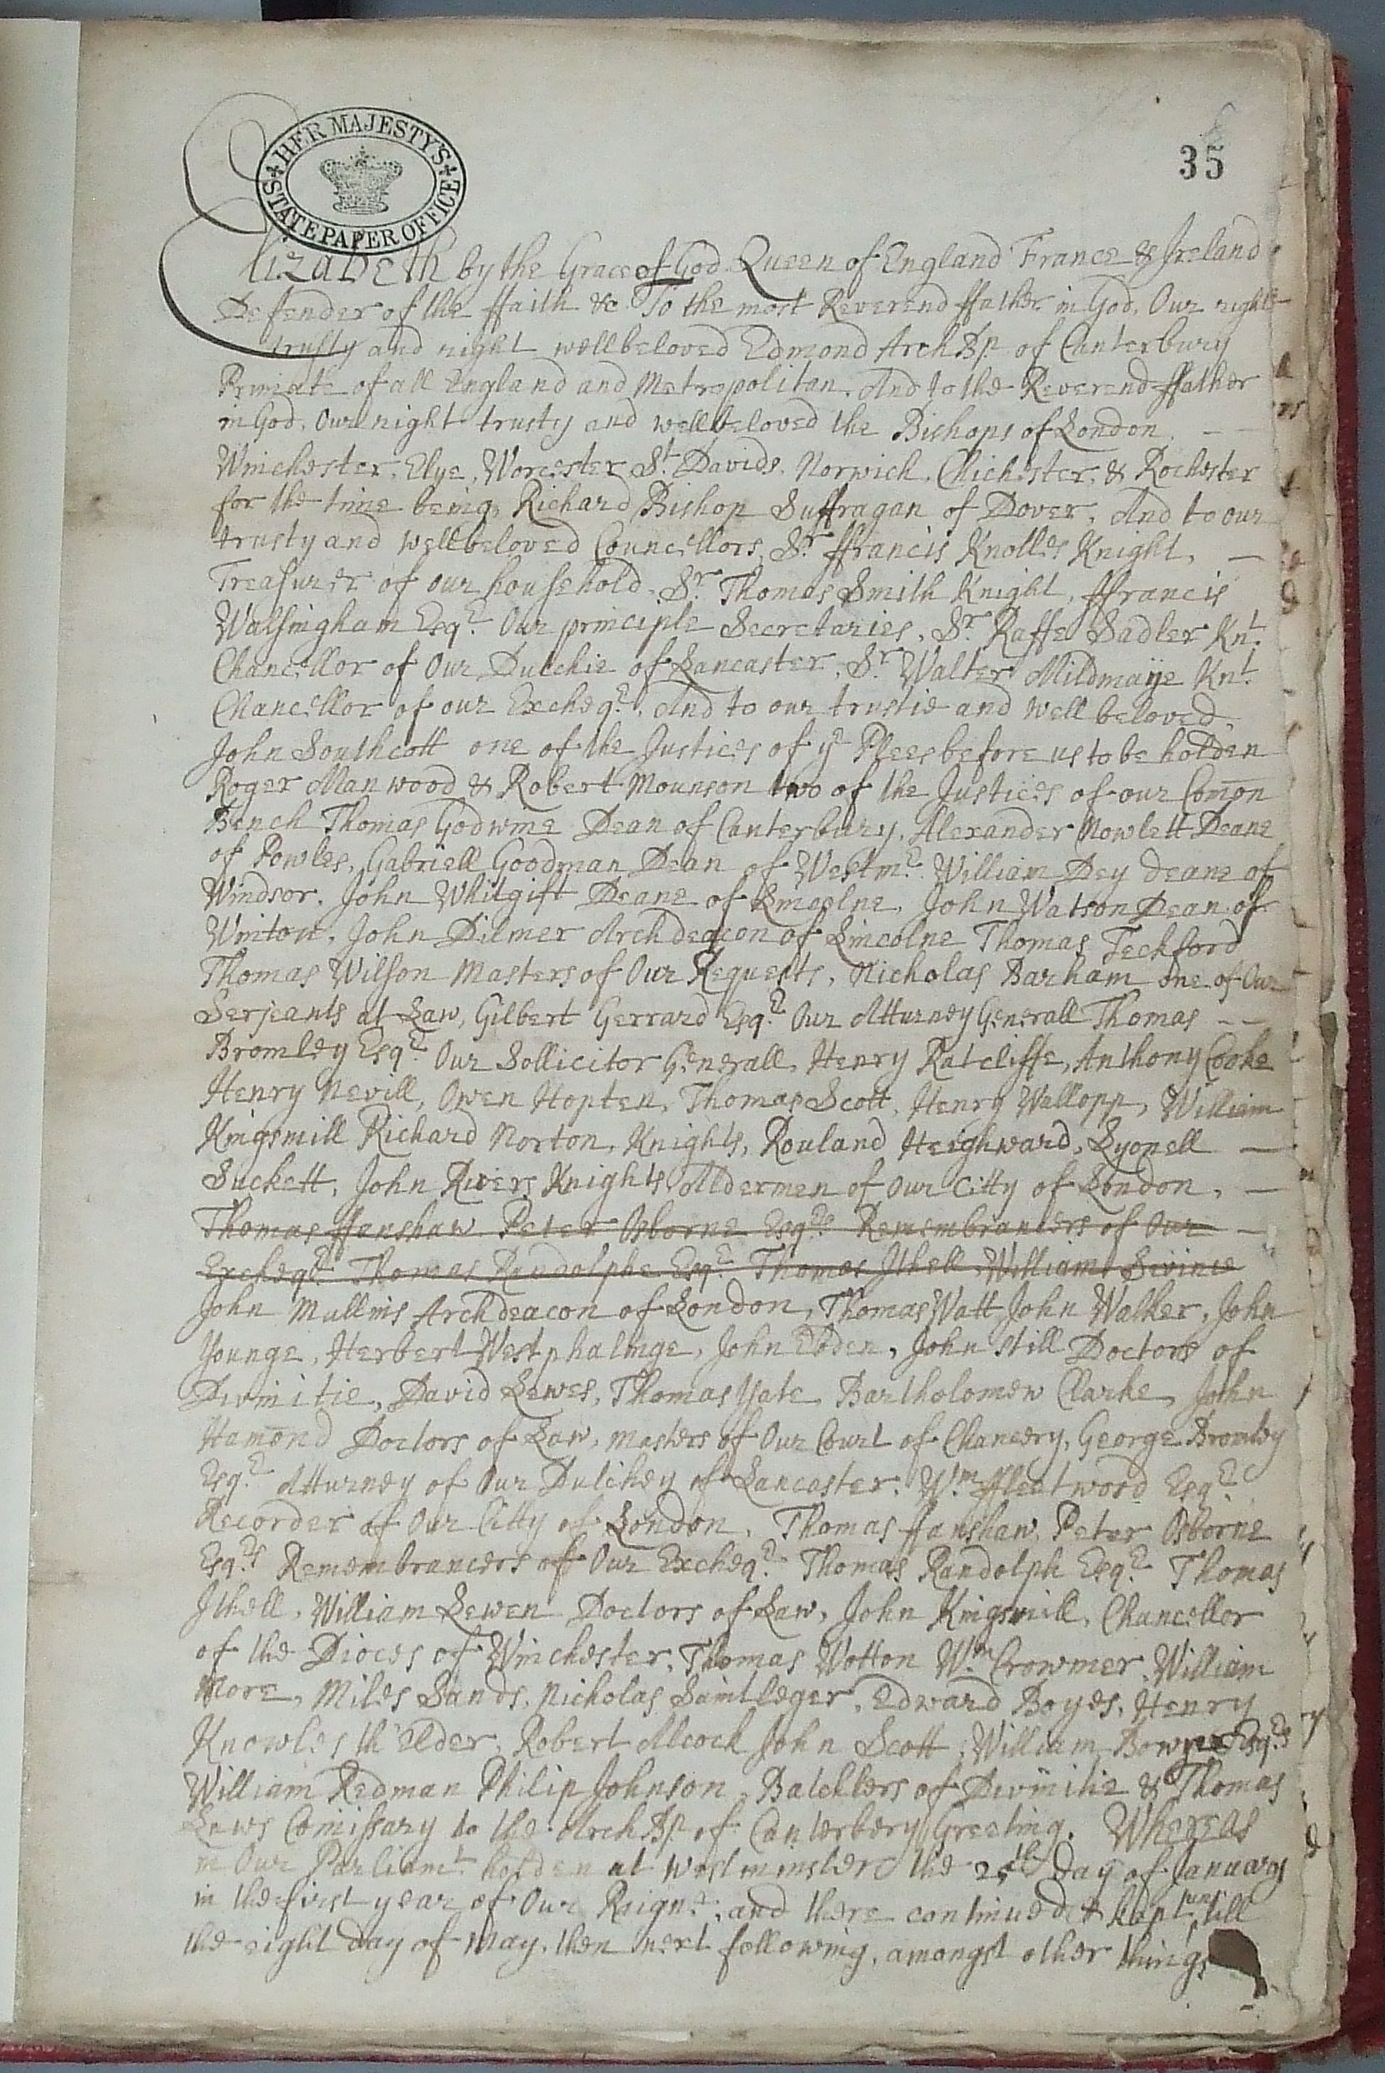 HER MAJESTY'S STATE PAPER OFFICE
35
Elizabeth by the Grace of God Queen of England France & Ireland
Defender of the ffaith &c To the most Reverend ffather in God, Our right
trusty and right wellbeloved Edmond ArchBp of Canterbury
Primate of all England and Metropolitan, And to the Reverend ffather
in God, Our right trusty and wellbeloved the Bishops of London, — —
Winchester, Elye, Worcester, St. Davids, Norwich, Chichester, & Rochester
for the time being, Richard Bishop Suffragan of Dover, And to our
trusty and wellbeloved Councellors, Sr. ffrancis Knolles Knight, —
Treasurer of our houshold, Sr. Thomas Smith Knight, ffrancis
Walsingham Esqr. Our principle Secretaries, Sr. Raffe Sadler Knt.
Chancellor of Our Dutchie of Lancaster, Sr. Walter Mildmaye Knt.
Chancellor of our Excheqr. And to our trustie and well beloved
John Southcott one of the Justices of ye Plees before us to be holden
Roger Manwood & Robert Mounson two of the Justices of our Comon
Bench Thomas Godwine Dean of Canterbury, Alexander Nowlett Deane
of Powles, Gabriell Goodman Dean of Westmr. William Dey deane of
Windsor, John Whitgift Deane of Lincolne, John Watson Dean of
Winton, John Dilmer Archdeacon of Lincolne Thomas Seckford
Thomas Wilson Masters of Our Requests, Nicholas Barham one of Our
Serjeants at Law, Gilbert Gerrard Esqr. Our Atturney Generall Thomas — —
Bromley Esqr. Our Sollicitor Generall, Henry Ratcliffe, Anthony Cooke
Henry Nevill, Owen Hopten, Thomas Scott, Henry Wallopp, William
Kingsmill Richard Norton, Knights, Rouland Heighward, Lyonell —
Duckett, John Rivers Knights Aldermen of Our Citty of London, —
Thomas ffanshaw Peter Osborne Esqrs Remembrancers of Our —
Excheqr. Thomas Randolphe Esqr. Thomas Ithell William
John Mullins Archdeacon of London, Thomas Watt John Walker, John
Younge, Herbert Westphalinge, John Ebden, John Still Doctors of
Divinitie, David Lewes, Thomas Yate Bartholomew Clarke, John
Hamond Doctors of Law, Masters of Our Court of Chancery, George Bromley
Esqr. Atturney of Our Dutchey of Lancaster. Wm. ffleetword Esqr.
Recorder of Our Citty of London, Thomas ffanshaw, Peter Osborne
Esqrs Remembrancers off Our Excheqr. Thomas Randolph Esqr. Thomas
Ithell, William Lewen Doctors of Law, John Kingsmill, Chancellor
of the Dioces of Winchester, Thomas Wotton Wm. Crowmer, William
More, Miles Sands, Nicholas Saintleger, Edward Boyes, Henry
Knowles th'elder, Robert Alcock John Scott, William Bowyer Esqrs
William Redman Philip Johnson, Batchlers of Divinitie & Thomas
Laws Comissary to the ArchBp of Canterbery Greeting. Whereas
in Our Parliamt. holden at Westminster the 25th day of January
in the first year of Our Reigne, and there continued & kept untill
the eight day of May, then next following, amongst other things